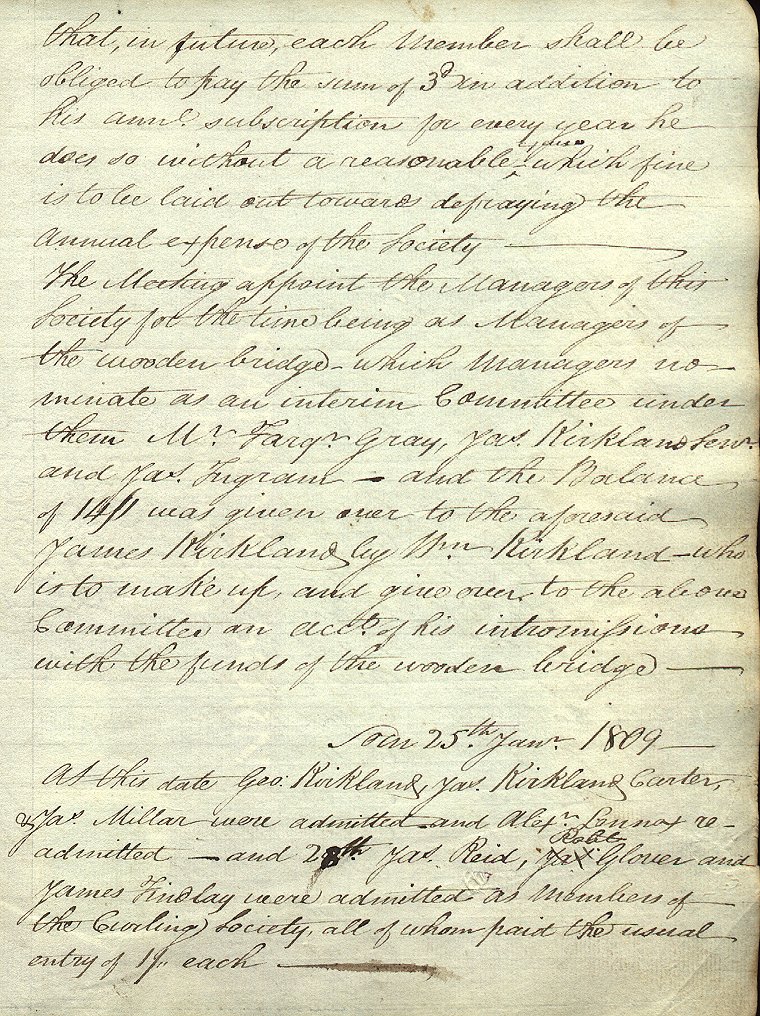 that, in future, each Member shall be
obliged to pay the sum of 3d in addition to
his annl. subscription for every year he
does so without a reasonable ^ which fine
is to be laid out towards defraying the
annual expense of the Society
The Meeting appoint the Managers of this
Society for the time being as Managers of
the wooden bridge - which Managers no-
minate as an interim Committee under
them Mr. Farqr. Gray, Jas. Kirkland Senr.
and Jas. Ingram - and the Balance
of 14/1 was given over to the aforesaid
James Kirkland by Wm. Kirkland - who
is to make up, and give over to the above
Committee an acct. of his intromissions
with the funds of the wooden bridge
25th. Janr. 1809
At this date Geo: Kirkland, Jas. Kirkland Carter,
& Jas. Millar were admitted and Alexr. Lennox re-
admitted - and 28th Jas. Reid, Jas. Robt. Glover and
James Findlay were admitted as Members of
the Curling Society, all of whom paid the usual
entry of 1/. each